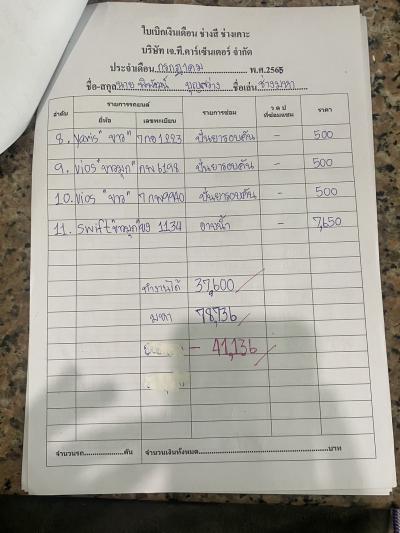 ใบเบิกเงินเดือน ช่างสี ช่างเคาะ
บริษัท เจ.ที.คาร์เซ็นเตอร์ จำกัด
ประจำเดือน กรกฎาคม พ.ศ.2565
ชื่อ-สกุล นาย บุญสว่าง ชื่อเล่น ช่างมหา
ลำดับ รายการรถยนต์ รายการซ่อม ว ด ป ที่ซ่อมแซม ราคา
ยี่ห้อ เลขทะเบียน
8. Yaris "ขาว" 7กอ1823 ปั่นยารอบคัน - 500
9. Vios "ขาวมุก" กพ6198 ปั่นยารอบคัน - 500
10. Vios "ขาว" 7กพ9940 ปั่นยารอบคัน - 500
11. Swift "ขาวมุก" 1134 - 7,650
ทำงานได้ 37,600
มหา 78,736
- 41,136
จำนวนรถ....................คัน จำนวนเงินทั้งหมด........................................บาท